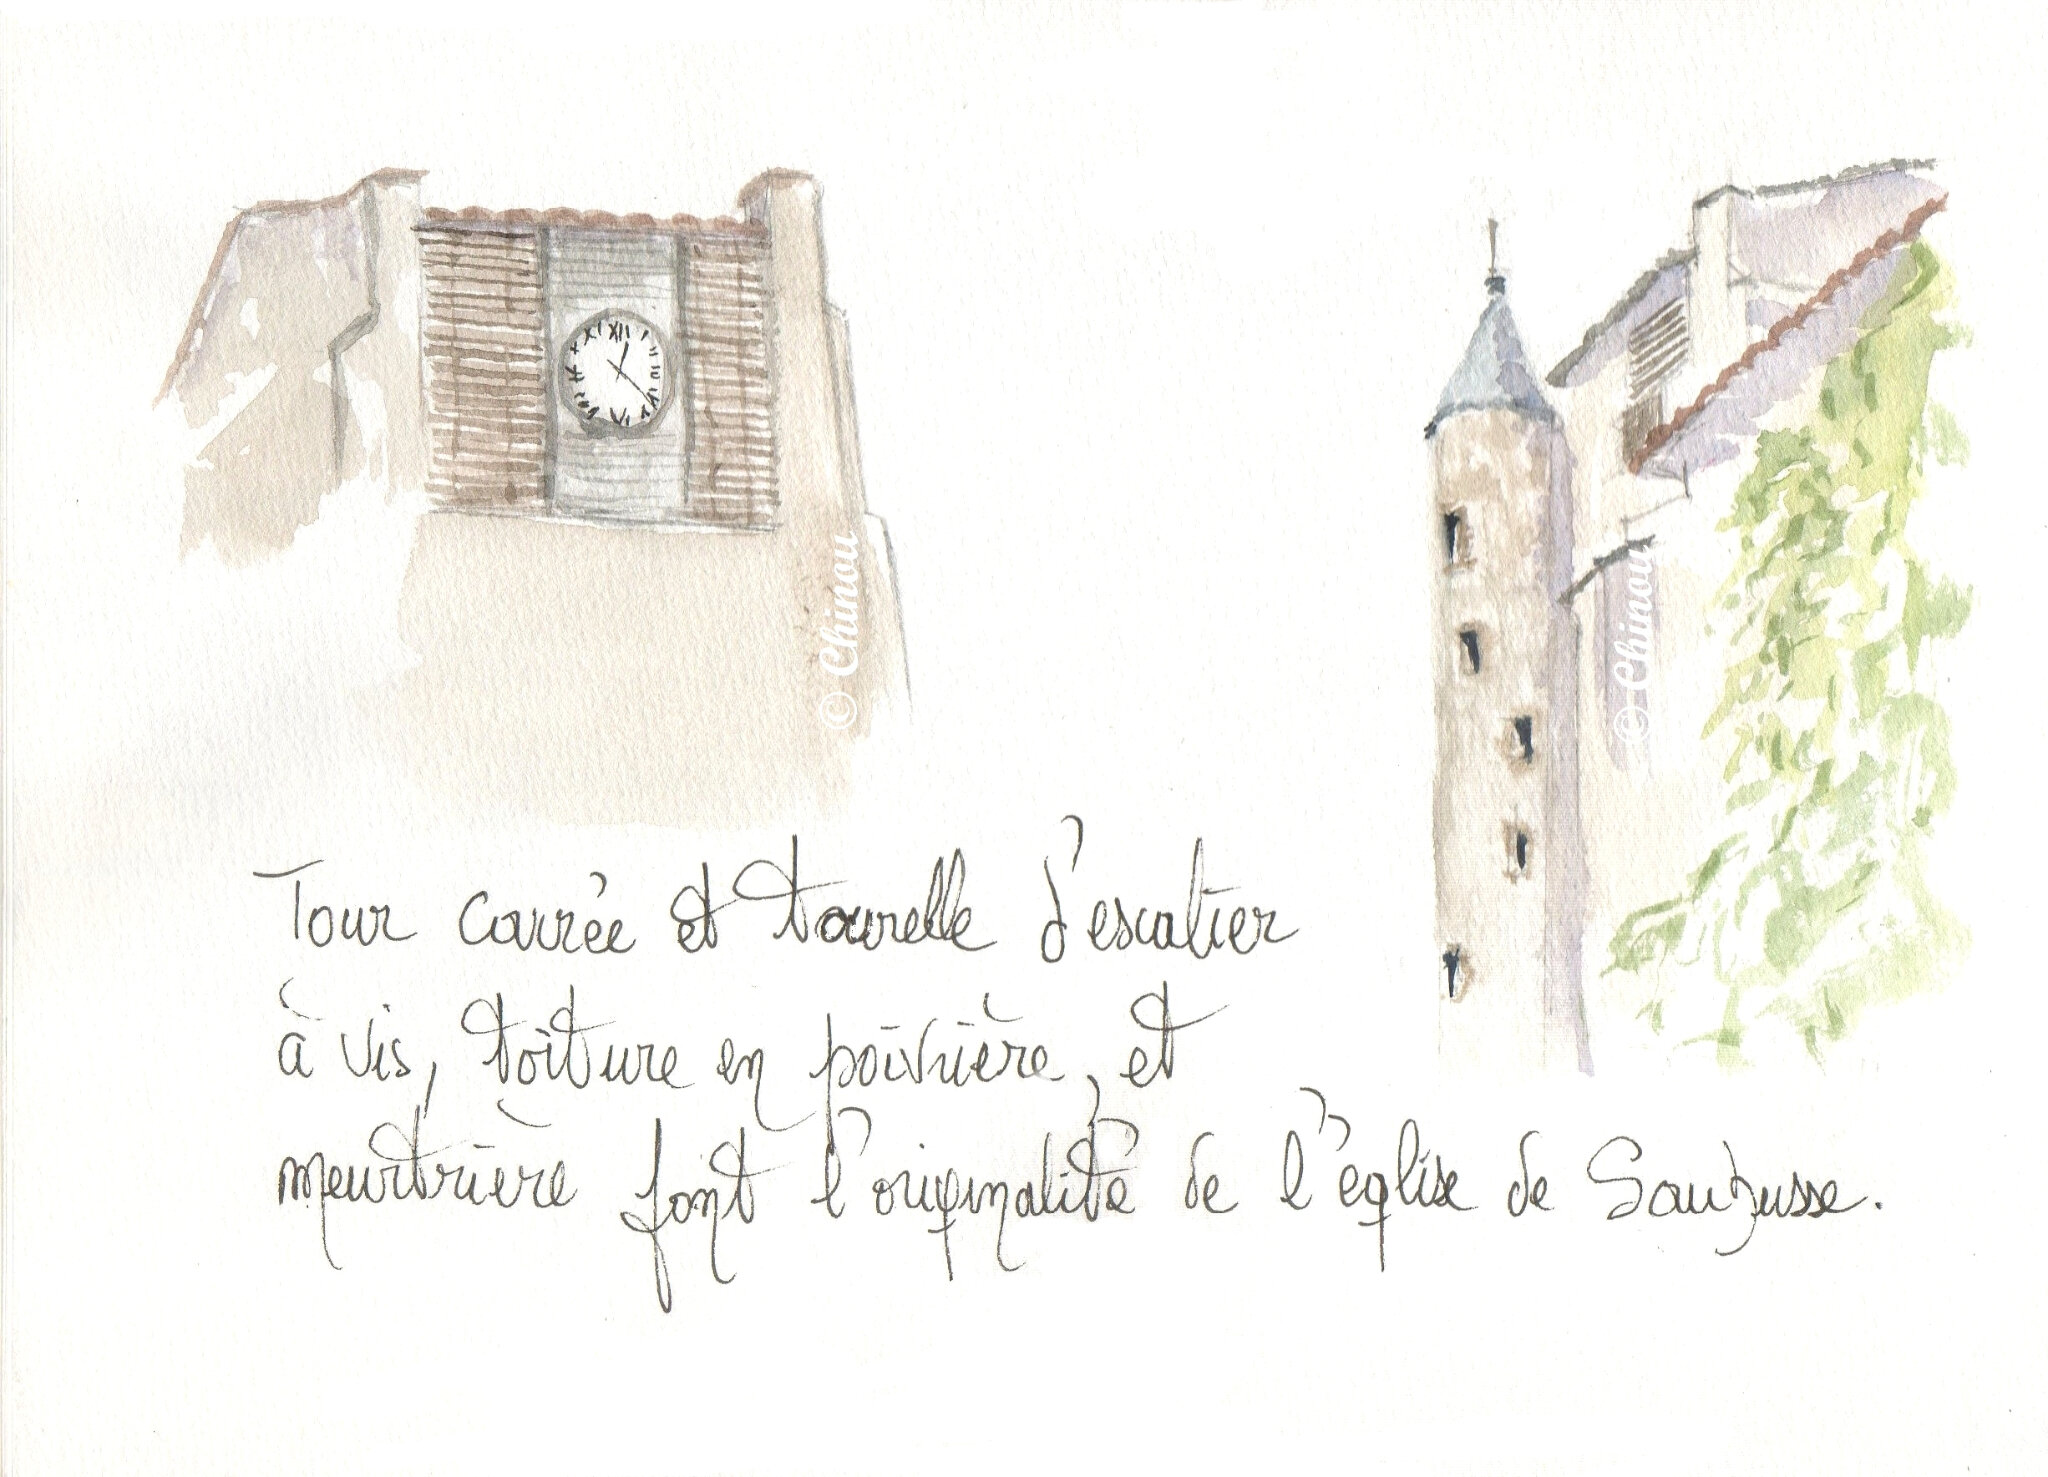 XII
© Chinou
© Chinou
Tour carrée et tourelle d'escalier
à vis, toiture en poivrière, et
meurtrière font l'originalité de l'église de Saubusse.